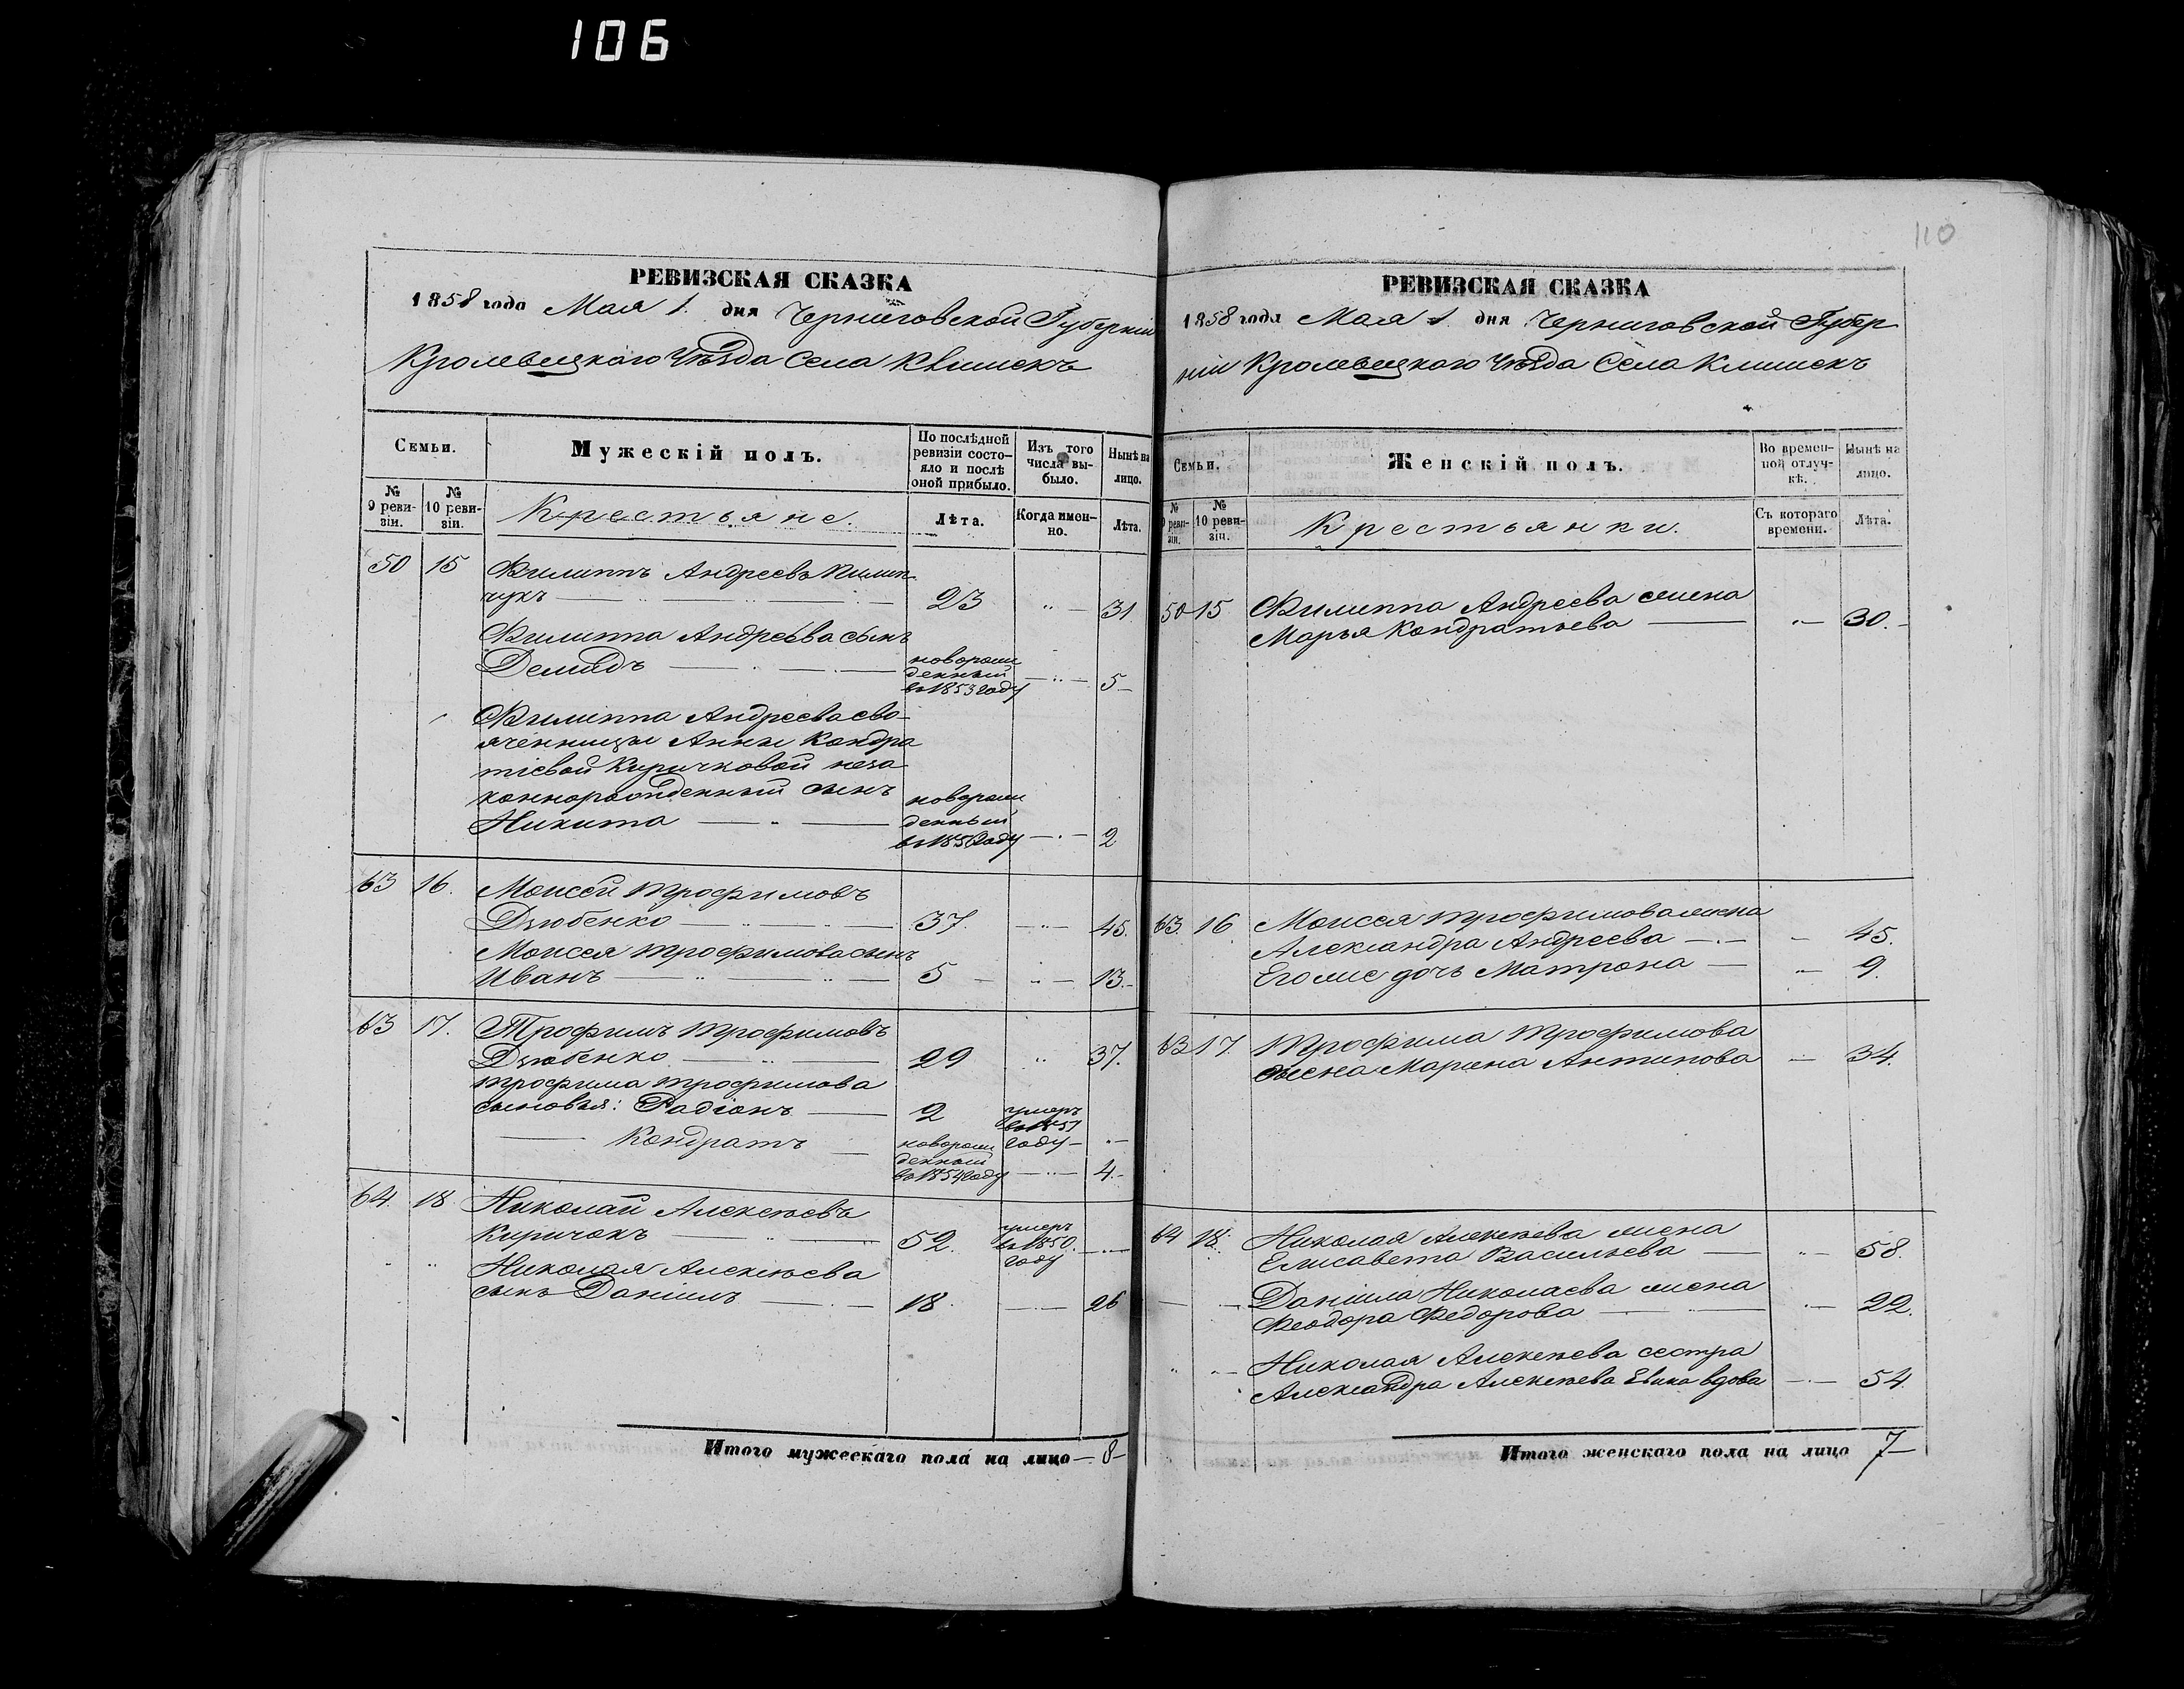 106
110
РЕВИЗСКАЯ СКАЗКА
1858 года Мая 1. дня Черниговской Губерніи
Кролевецкаго Уѣзда Села Клишекъ
Семьи.
Мужескій полъ.
По послѣдной
ревизіи состо-
яло и послѣ
оной прибыло.
Изъ того
числа вы-
было.
Нынѣ на
лицо.
№
9 реви-
зіи.
№
10 реви-
зіи.
Крестьяне.
Лѣта.
Когда имен-
но.
Лѣта.
50 15 Филиппъ Андреевъ Пилип
чукъ 23 31
Филиппа Андреева сынъ
Демидъ новорож
денный
въ 1853 году 5
Филиппа Андреева сво-
яченницы Анны Кондра
тіевой Киричковой неза
коннорожденный сынъ
Никита новорож
денный
въ 1856 году 2
63 16. Моисей Трофимовъ
Дзюбенко 37. 45.
Моисея Трофимова сынъ
Иванъ 5 13.
63 17. Трофимъ Трофимовъ
Дзюбенко 29 37.
Трофима Трофимова
сыновья: Радіонъ 2 умеръ
въ 1851
году
Кондратъ новорож
денный
въ 1854 году 4.
64. 18 Николай Алексѣевъ
Киричокъ 52. умеръ
въ 1850.
году
Николая Алексѣева
сынъ Даніилъ 18. 26
Итого мужескаго пола на лицо 8
РЕВИЗСКАЯ СКАЗКА
1858 года Мая 1 дня Черниговской Губер
ніи Кролевецкаго Уѣзда Села Клишекъ
Семьи.
Женскій полъ.
Во времен-
ной отлуч-
кѣ.
Нынѣ на
лицо.
№
9 реви-
зіи.
№
10 реви-
зіи.
Крестьянки.
Съ котораго
времени.
Лѣта.
50 15 Филиппа Андреева жена
Марья Кондратьева 30.
63. 16 Моисея Трофимова жена
Александра Андреева 45.
Его же дочь Матрона 9.
63 17. Трофима Трофимова
жена Марина Антипова 34.
64 18. Николая Алексѣева жена
Елисавета Васильева 58.
Даніила Николаева жена
Феодора Федорова 22.
Николая Алексѣева сестра
Александра Алексѣева вдова 54.
Итого женскаго пола на лицо 7